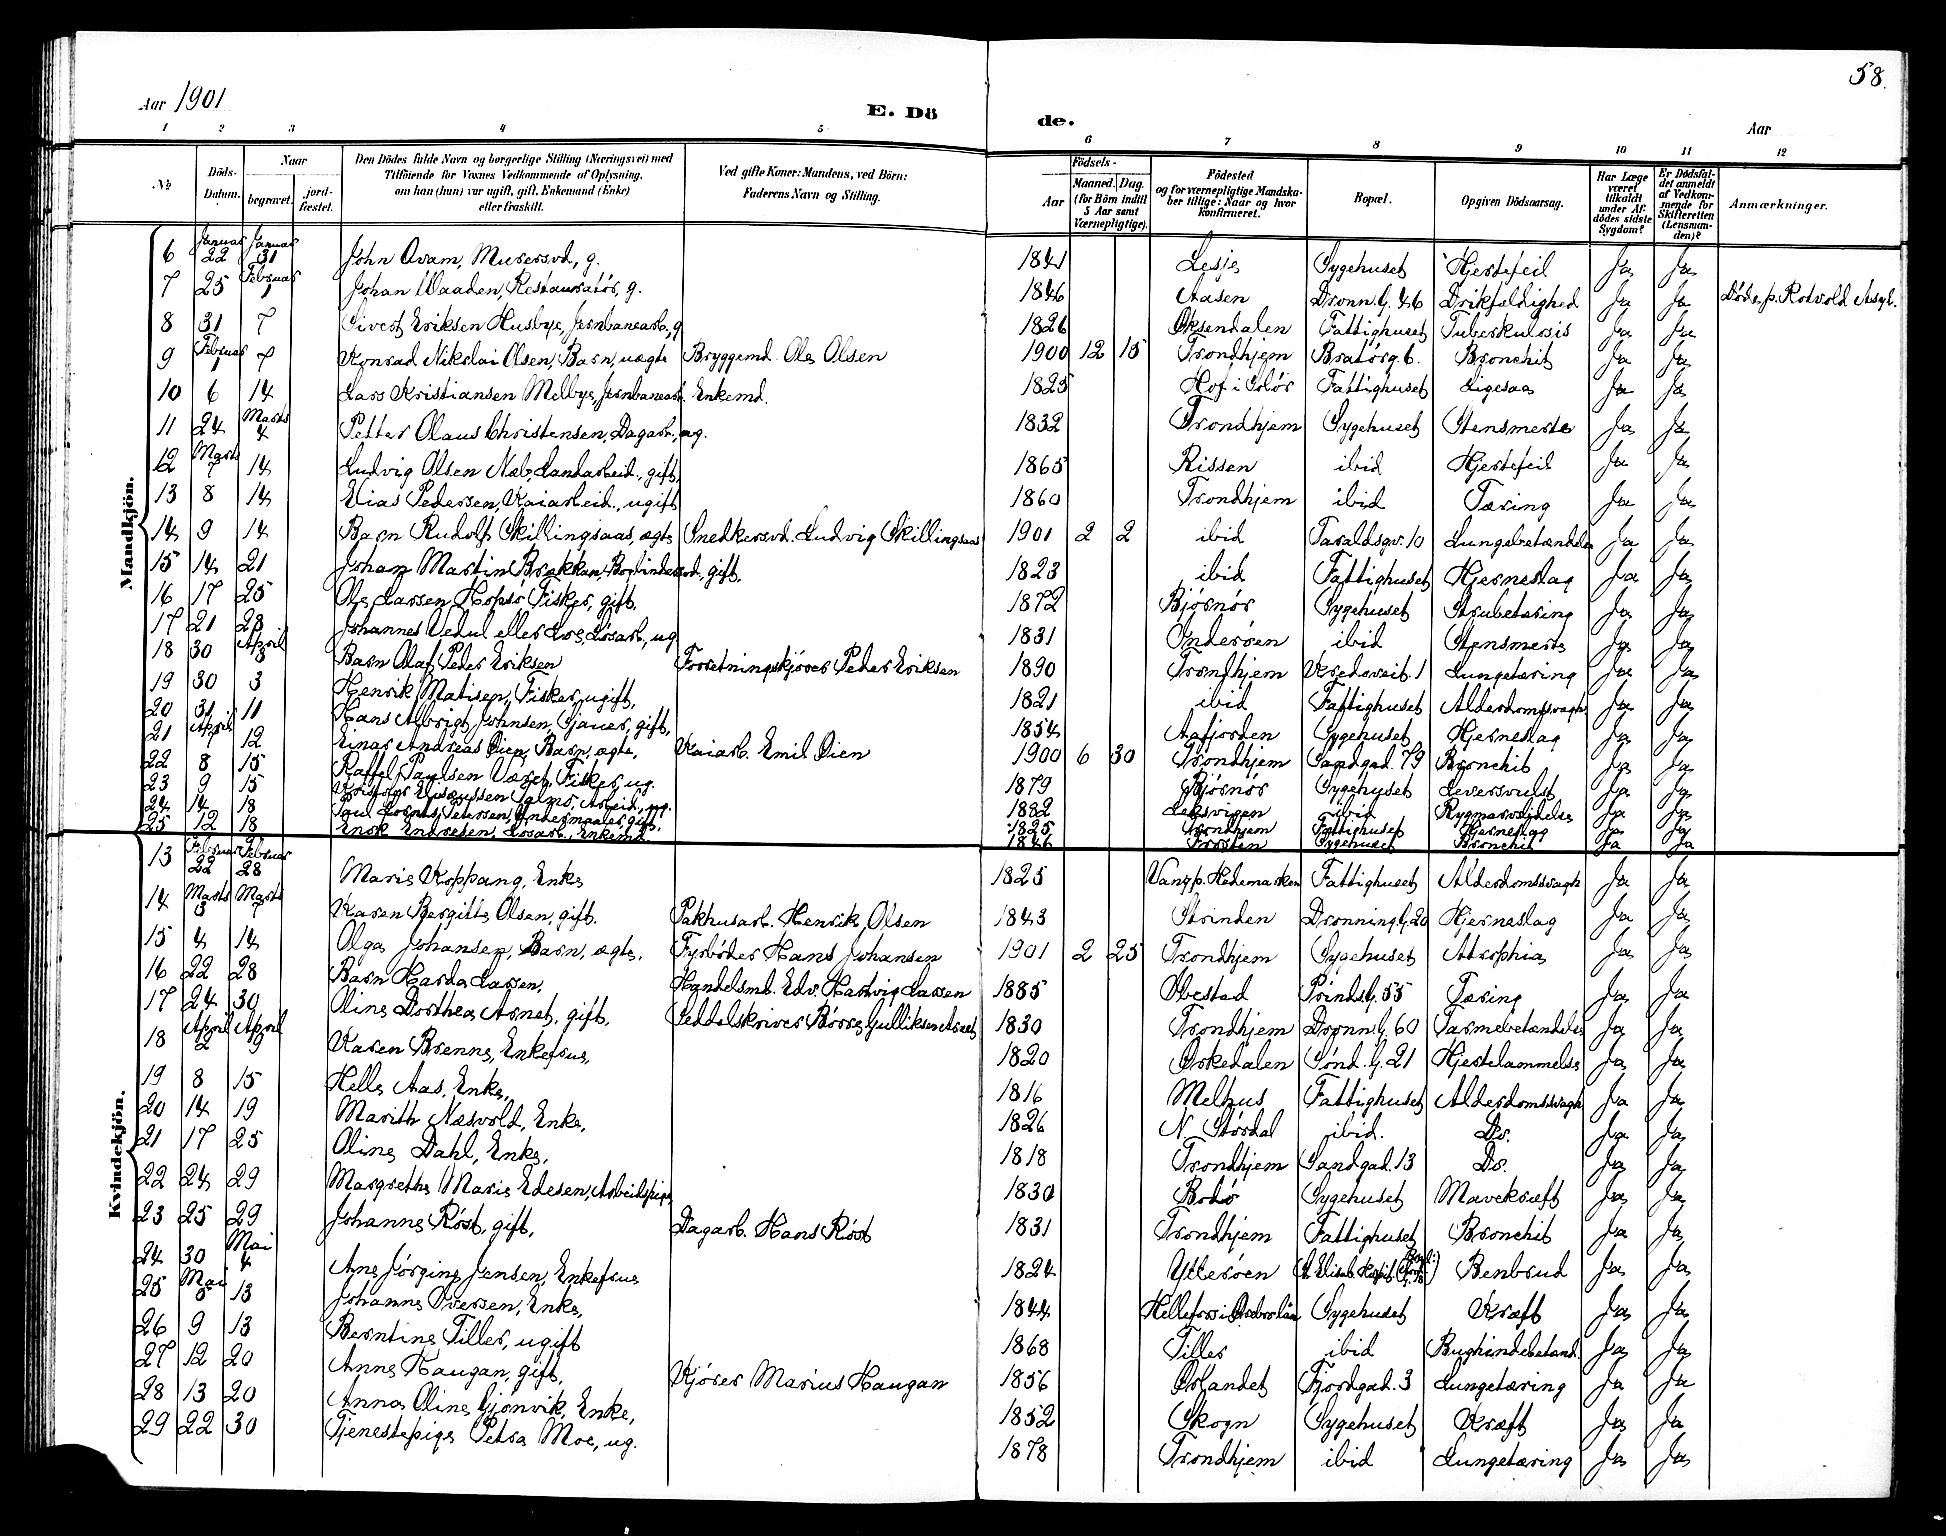 58.
Aar 1901
E. Dö
de.
Aar
1 2 3 4 5 6 7 8 9 10 11 12
№
Döds-Datum.
Naar
begravet.
jord-fæstet.
Den Dödes fulde Navn og borgerlige Stilling (Næringsvei) med
Tilföiende for Voxnes Vedkommende af Oplysning,
om han (hun) var ugift, gift, Enkemand (Enke)
eller fraskilt.
Ved gifte Koner: Mandens, ved Börn:
Faderens Navn og Stilling.
Födsels-
Aar
Maaned. Dag.
(for Börn indtil
5 Aar samt
Værnepligtige).
Födested
og for værnepligtige Mandska-
ber tillige: Naar og hvor
konfirmeret.
Bopæl.
Opgiven Dödsaarsag.
Har Læge
været
tilkaldt
under Af-
dödes sidste
Sygdom?
Er Dödsfal-
det anmeldt
af Vedkom-
mende for
Skifteretten
(Lensman-
den)?
Anmærkninger.
Mandkjön.
6 Januar 22 Januar 31 John Avam, Murersvd, g. 1841 Lesje Sygehuset Hjertefeil Ja Ja
7 25 Februar 1 Johan Waaden, Restauratör, g. 1846 Aasen Dronn.G. 46 Drikfældighed Ja Ja Döde p. Rotvold Asyl.
8 31 7 Sivert Eriksen Husbye, Jernbanearb., g 1826 Öksendalen Fattighuset Tuberkulosis Ja Ja
9 Februar 1 7 Konrad Nikolai Olsen, Barn, uægte Bryggemd. Ole Olsen 1900 12 15 Trondhjem Bratörg. 6. Bronchit Ja Ja
10 6 14 Lars Kristiansen Melbye, Jernbanearb. Enkemd. 1825 Hof i Solör Fattighuset Ligesaa Ja Ja
11 24 Marts 4 Petter Olaus Christensen, Dagarb., ug. 1832 Trondhjem Sygehuset Stensmerte Ja Ja
12 Marts 7 14 Ludvig Olsen Næb, Landarbeid., gift, 1865 Rissen ibid Hjertefeil Ja Ja
13 8 14 Elias Pedersen, Kaiarbeid., ugift 1860 Trondhjem ibid Tæring Ja Ja
14 9 14 Barn Rudolf Skillingsaas, ægte Snedkersvd. Ludvig Skillingsaas 1901 2 2 ibid Taraldsgv. 10 Lungebetændelse Ja Ja
15 14 21 Johan Martin Brækkan, Bogbindersvd., gift. 1823 ibid Fattighuset Hjerneslag Ja Ja
16 17 25 Ole Larsen Hopsö Fisker, gift, 1872 Bjørnør Sygehuset Strubetæring Ja Ja
17 21 28 Johannes Vedul eller Loe, Løsarb., ug 1831 Inderøen ibid Stensmerte Ja Ja
18 30 April 3 Barn Olaf Peder Eriksen Forretningskjører Peder Eriksen 1890 Trondhjem Vredesveit. 1 Lungetæring Ja Ja
19 30 3 Henrik Matisen, Fisker, ugift, 1821 ibid Fattighuset Alderdomssvagh. Ja Ja
20 31 11 Hans Albrigt Johnsen Gjæver, gift, 1854 Aafjorden Sygehuset Hjerneslag Ja Ja
21 April 7 12 Einar Andreas Dien, Barn, ægte, Kaiarb. Emil Dien 1900 6 30 Trondhjem Sandgad. 79 Bronchit Ja Ja
22 8 15 Raffel Paulsen Været, Fisker, ug. 1879 Bjørnør Sygehuset Leversvulst Ja Ja
23 9 15 Arbeid, ug. 1882 Leksvigen ibid Rygmarvslidelse Ja Ja
24 14 18 Petersen, Andermaaler, gift, 1825 Trondhjem Fattighuset Hjerneslag Ja Ja
25 12 18 Enok Endresen, Løsarb., Enkemd. 1846 Frosten Sygehuset Bronchit Ja Ja
Kvindekjön.
13 Februar 22 Februar 28 Marie Koppang, Enke 1825 Vang p. Hedemarken Fattighuset Alderdomssvagh Ja Ja
14 Marts 3 Marts 7 Karen Bergitte Olsen, gift. Pakhusarb. Henrik Olsen 1843 Strinden Dronning G. 20 Hjerneslag Ja Ja
15 4 14 Olga Johansen, Barn, ægte, Fyrbøder Hans Johansen 1901 2 25 Trondhjem Sygehuset Atrophia Ja Ja
16 22 28 Barn Harda Larsen, Handelsmd. Edv. Hartvig Larsen 1885 Ibestad Prinds.G. 55 Tæring Ja Ja
17 24 30 Oline Dorthea Arnet, gift, Seddelskriver Børre Gulliksen Arnet 1830 Trondhjem Dronn.G. 60 Tarmebetændelse Ja Ja
18 April 2 April 9 Karen Brenne, Enkefrue, 1820 Ørkedalen Sönd.G. 21 Hjertelammelse Ja Ja
19 8 15 Helle Aas, Enke, 1816 Melhus Fattighuset Alderdomssvagh Ja Ja
20 14 19 Marith Næsvold, Enke, 1826 N. Stördal ibid. Do. Ja Ja
21 17 25 Oline Dahl, Enke, 1818 Trondhjem Sandgad. 13 Do. Ja Ja
22 24 29 Margrethe Marie Edesen, Arbeidspige 1830 Bodö Sygehuset Mavekræft Ja Ja
23 25 29 Johanne Røst, gift, Dagarb. Hans Røst 1831 Trondhjem Fattighuset Bronchit Ja Ja
24 30 Mai 4 Ane Jørgine Jensen, Enkefrue 1824 Ytterøen Benbrud Ja Ja
25 Mai 8 13 Johanne Iversen, Enke, 1844 Hellefors i Ørebro län Sygehuset Kræft Ja Ja
26 9 13 Berntine Tiller, ugift 1868 Tiller ibid Bughindebetænd. Ja Ja
27 12 20 Anne Haugan, gift, Kjører Marius Haugan 1856 Ørlandet Fjordgad. 3 Lungetæring Ja Ja
28 13 20 Anna Oline Gjønvik, Enke, 1852 Skogn Sygehuset Kræft Ja Ja
29 22 30 Tjenestepige Petra Moe, ug. 1878 Trondhjem ibid Lungetæring Ja Ja